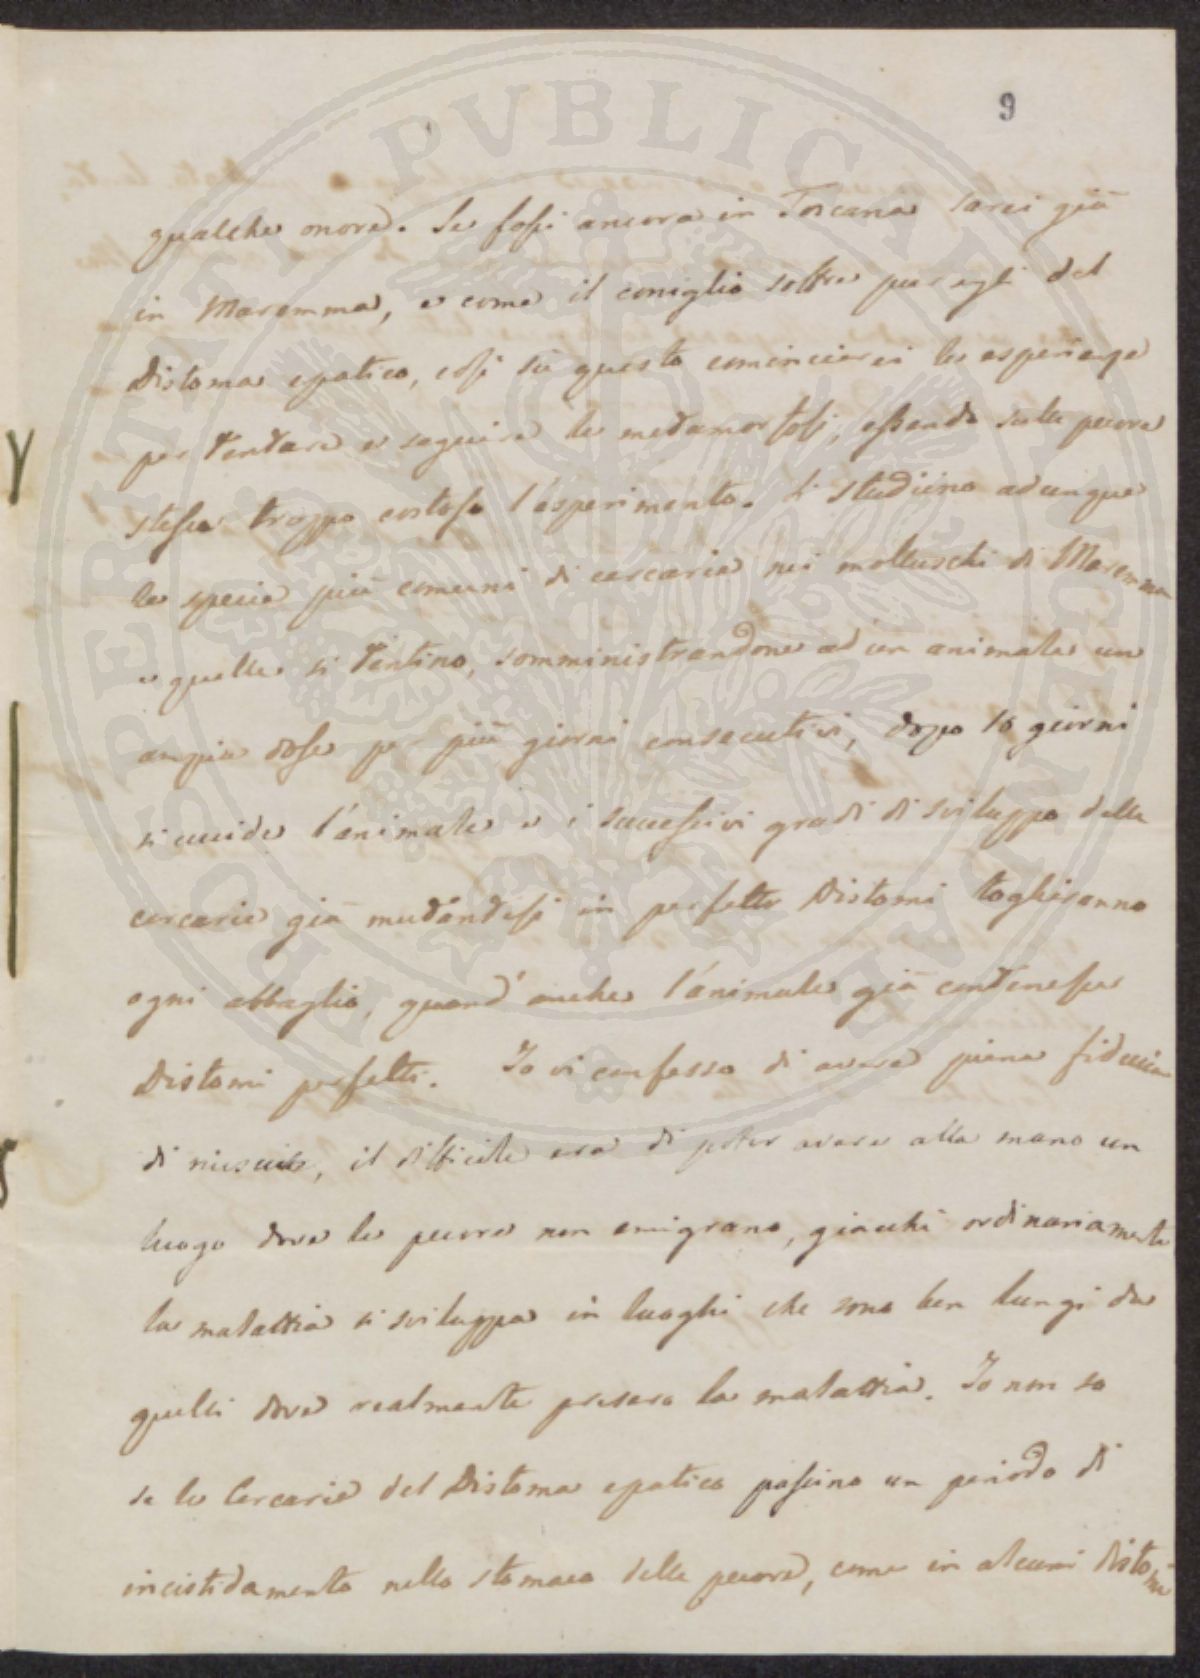 9
qualche onore. Se fossi ancora in Toscana sarei già
in Maremma, e come il coniglio soffre pur egli del
Distoma epatico, così su questo comincierei le esperienze
per tentare e seguire le metamorfosi, essendo sulle pecore
stesse troppo costoso l'esperimento. Si studiino adunque
le specie più comuni di cercarie nei molluschi di Maremma
e quelle si tentino, somministrandone ad un animale un
ampia dose per più giorni consecutivi, dopo 10 giorni
si uccide l'animale e i successivi gradi di sviluppo delle
cercarie già mutandosi in perfetti Distomi toglieranno
ogni abbaglio, quand'anche l'animale già contenesse
Distomi perfetti. Io vi confesso di avere piena fiducia
di riuscire, il difficile era di poter avere alla mano un
luogo dove le pecore non emigrano, giacchè ordinariamente
la malattia si sviluppa in luoghi che sono ben lungi da
quelli dove realmente presero la malattia. Io non so
se le Cercarie del Distoma epatico passino un periodo di
incistidamento nello stomaco delle pecore, come in alcuni Distomi
PERITATI PVBLICAE